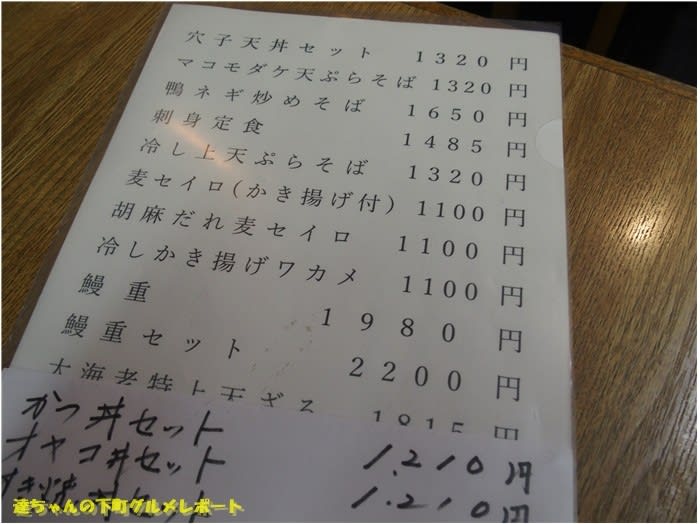 穴子天丼セット 1320円
マコモダケ天ぷらそば 1320円
鴨ネギ炒めそば 1650円
刺身定食 1485円
冷し上天ぷらそば 1320円
麦セイロ(かき揚げ付) 1100円
胡麻だれ麦セイロ 1100円
冷しかき揚げワカメ 1100円
鰻重 1980円
鰻重セット 2200円
大海老特上天ざる 1815円
かつ丼セット 1.210円
オヤコ丼セット 1.210円
すき焼丼セット
達ちゃんの下町グルメレポート